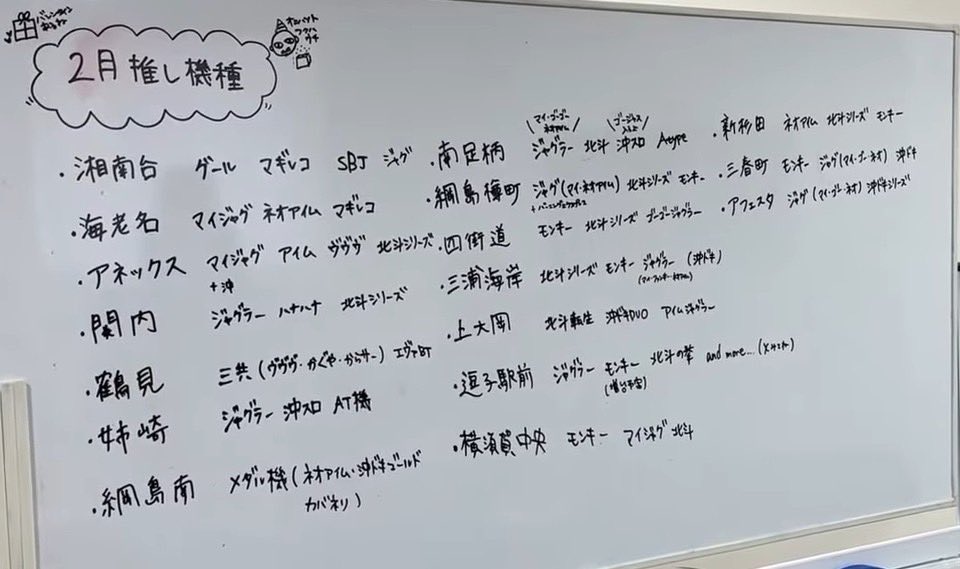 バレンタイン
2月推し機種
・湘南台 ゲール マギレコ SBJ ジャグ
・海老名 マイジャグ ネオアイム マギレコ
・アネックス マイジャグ アイム ヴヴヴ 北斗シリーズ
+沖
・関内 ジャグラー ハナハナ 北斗シリーズ
・鶴見 三共(ヴヴヴ・かぐや・からサー) エヴァBT
・姉崎 ジャグラー 沖スロ AT機
・綱島南 メダル機(ネオアイム・沖ドキゴールド
カバネリ)
\マイ・ゴーゴー
ネオアイム/
\ゴージャス
・南足柄 ジャグラー 北斗 沖スロ Atype
・綱島樽町 ジャグ(マイ・ネオアイム) 北斗シリーズ モンキー
・四街道 モンキー 北斗シリーズ ゴーゴージャグラー
・三浦海岸 北斗シリーズ モンキー ジャグラー (沖ドキ)
・上大岡 北斗転生 沖ドキDUO アイムジャグラー
・逗子駅前 ジャグラー モンキー 北斗の拳 and more...
(増台予定)
・横須賀中央 モンキー マイジャグ 北斗
・新杉田 ネオアイム 北斗シリーズ モンキー
・三春町 モンキー ジャグ(マイ・ゴー・ネオ) 沖ドキ
・アフェスタ ジャグ(マイ・ゴー・ネオ) 沖ドキシリーズ